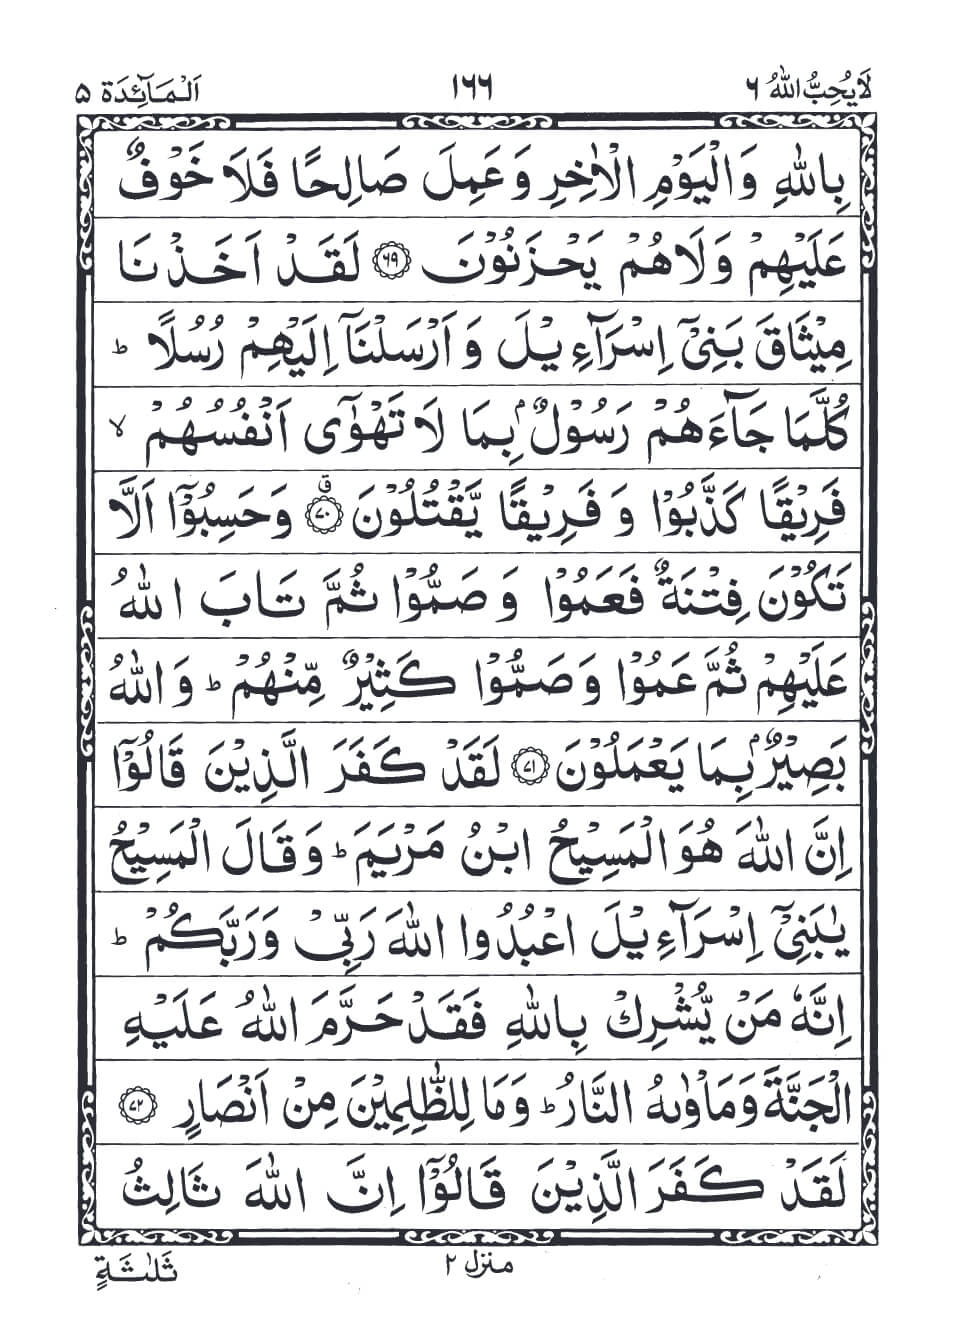 لَا يُحِبُّ اللّٰهُ ٦
١٦٦
اَلْمَآئِدَة ٥
بِاللّٰهِ وَالْيَوْمِ الْاٰخِرِ وَعَمِلَ صَالِحًا فَلَا خَوْفٌ
عَلَيْهِمْ وَلَا هُمْ يَحْزَنُوْنَ ٦٩ لَقَدْ اَخَذْنَا
مِيْثَاقَ بَنِيْٓ اِسْرَآءِيْلَ وَاَرْسَلْنَآ اِلَيْهِمْ رُسُلًا ؕ
كُلَّمَا جَآءَهُمْ رَسُوْلٌۢ بِمَا لَا تَهْوٰٓى اَنْفُسُهُمْ ۙ
فَرِيْقًا كَذَّبُوْا وَفَرِيْقًا يَّقْتُلُوْنَ ٧٠ ق وَحَسِبُوْٓا اَلَّا
تَكُوْنَ فِتْنَةٌ فَعَمُوْا وَصَمُّوْا ثُمَّ تَابَ اللّٰهُ
عَلَيْهِمْ ثُمَّ عَمُوْا وَصَمُّوْا كَثِيْرٌ مِّنْهُمْ ؕ وَاللّٰهُ
بَصِيْرٌۢ بِمَا يَعْمَلُوْنَ ٧١ لَقَدْ كَفَرَ الَّذِيْنَ قَالُوْٓا
اِنَّ اللّٰهَ هُوَ الْمَسِيْحُ ابْنُ مَرْيَمَ ؕ وَقَالَ الْمَسِيْحُ
يٰبَنِيْٓ اِسْرَآءِيْلَ اعْبُدُوا اللّٰهَ رَبِّيْ وَرَبَّكُمْ ؕ
اِنَّهٗ مَنْ يُّشْرِكْ بِاللّٰهِ فَقَدْ حَرَّمَ اللّٰهُ عَلَيْهِ
الْجَنَّةَ وَمَاْوٰىهُ النَّارُ ؕ وَمَا لِلظّٰلِمِيْنَ مِنْ اَنْصَارٍ ٧٢
لَقَدْ كَفَرَ الَّذِيْنَ قَالُوْٓا اِنَّ اللّٰهَ ثَالِثُ
منزل ٢
ثَلٰثَةٍ